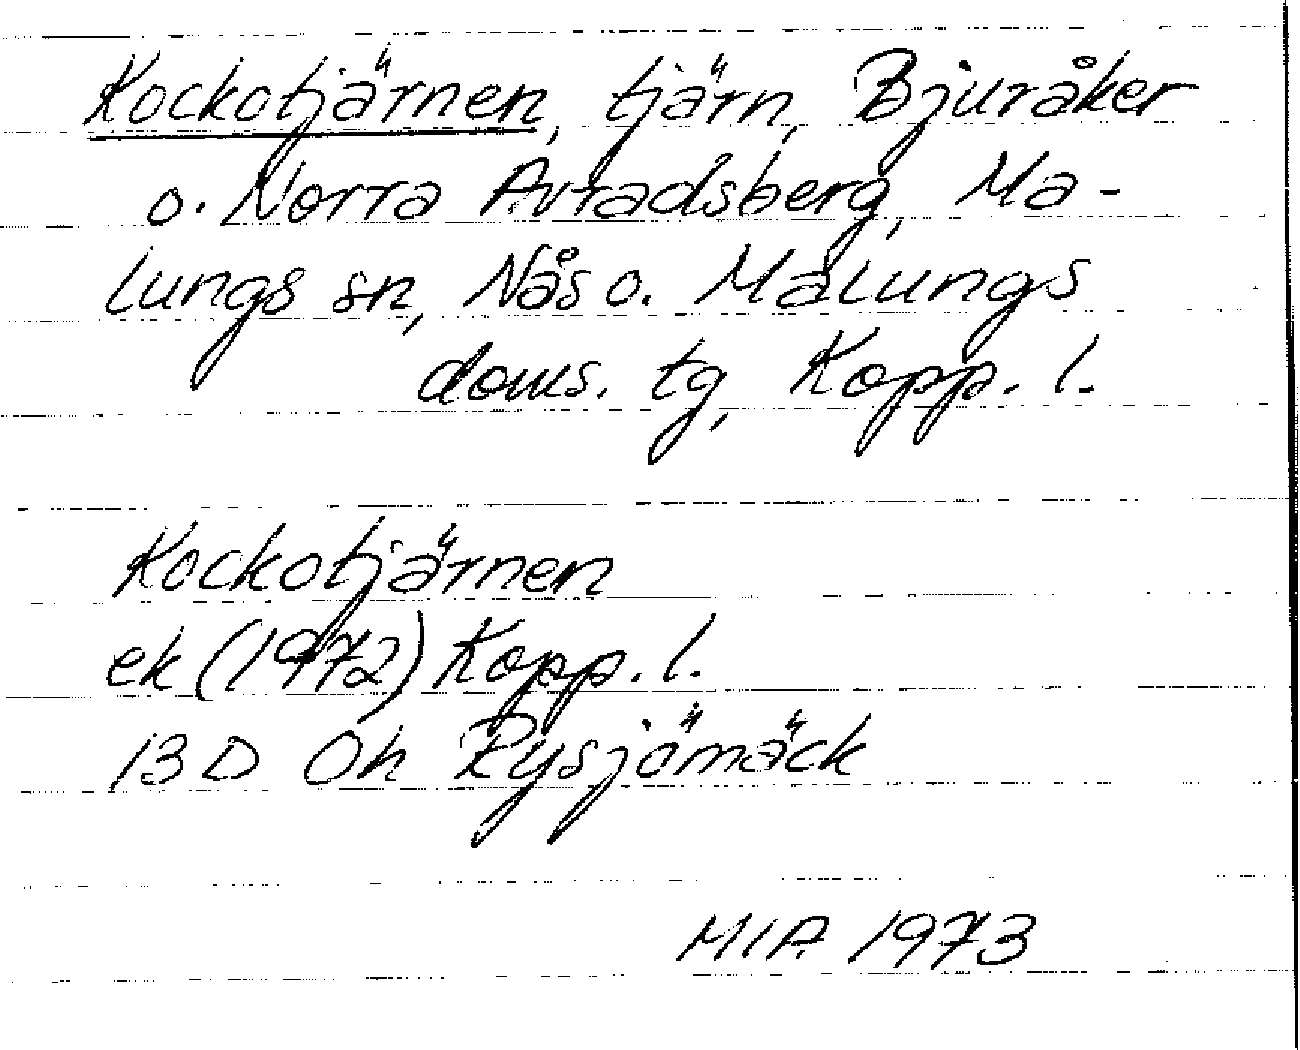 Kockotjärnen, tjärn, Bjuråker
o. Norra Avradsberg, Ma-
lungs sn, Nås o. Malungs
doms. tg, Kopp. l.
Kockotjärnen
ek (1972) Kopp. l.
13 D Oh Rysjömäck
MIA 1973